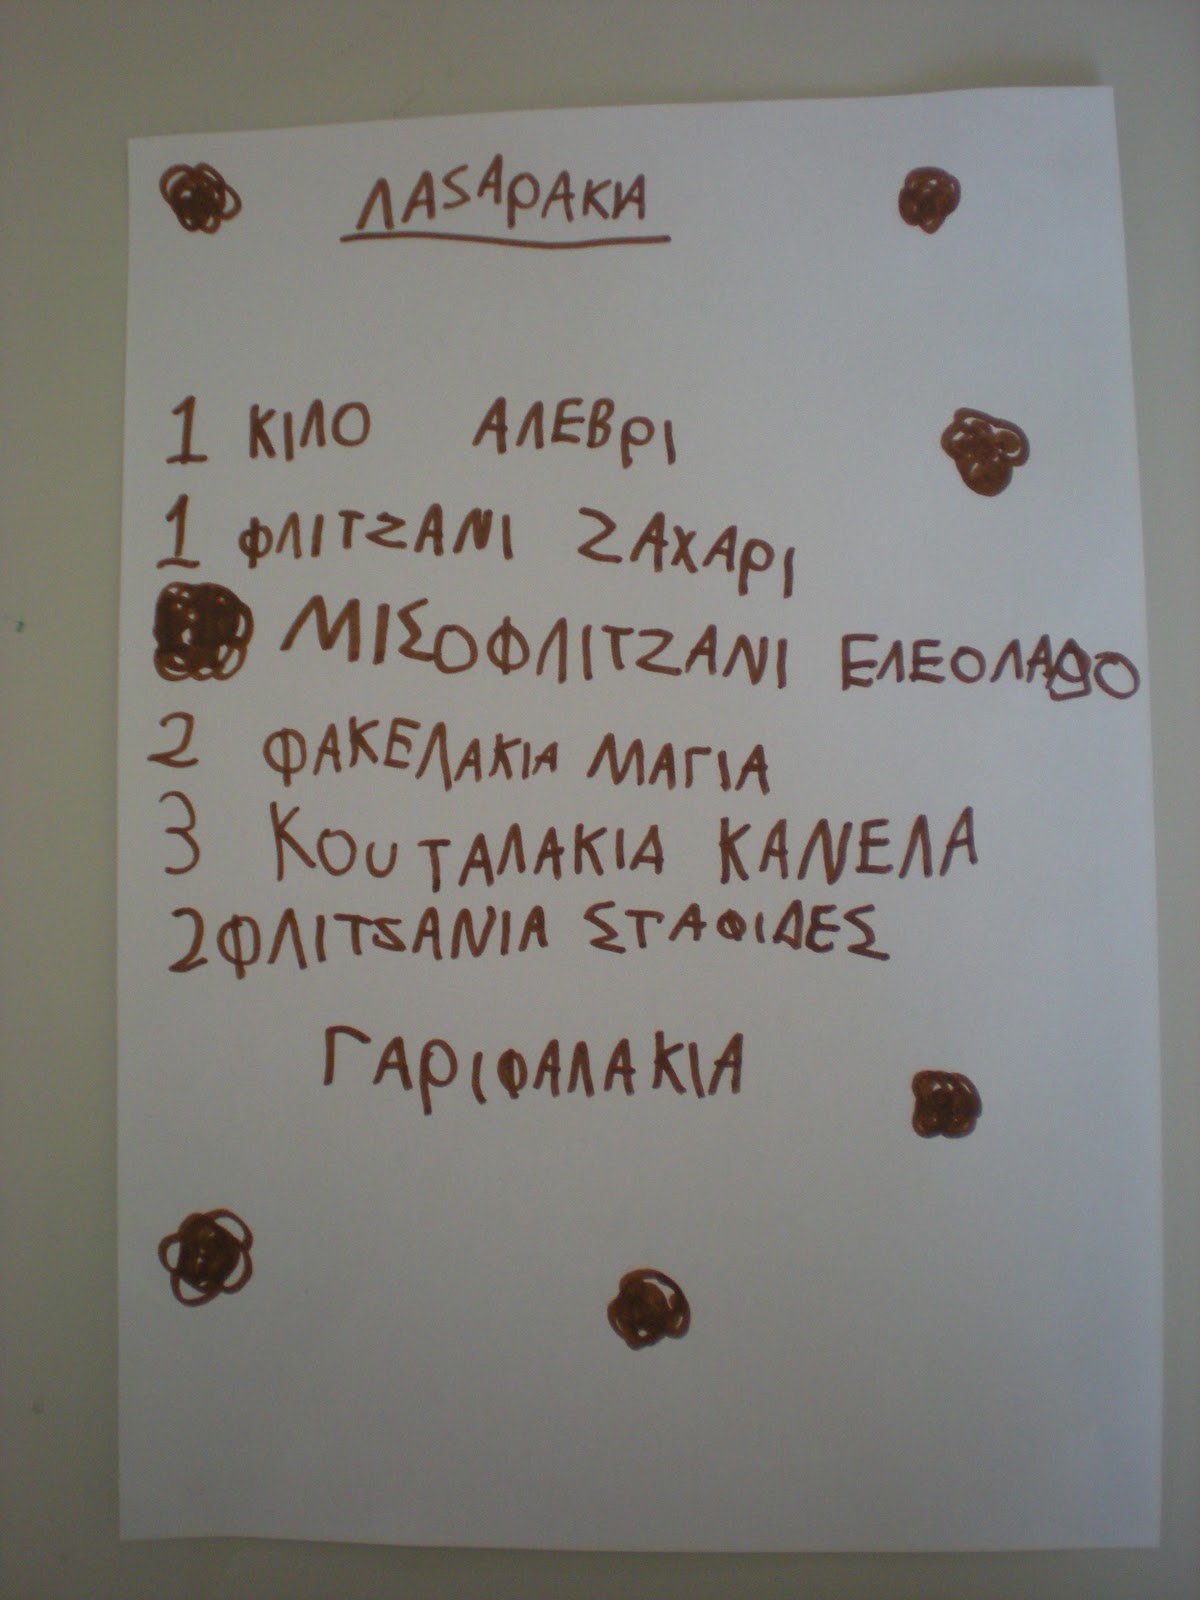 ΛΑSΑΡΑΚΙΑ
1 ΚΙΛΟ ΑΛΕΒΡΙ
1 ΦΛΙΤΖΑΝΙ ΖΑΧΑΡΙ
ΜΙΣΟΦΛΙΤΖΑΝΙ ΕΛΕΟΛΑΔΟ
2 ΦΑΚΕΛΑΚΙΑ ΜΑΓΙΑ
3 ΚΟυΤΑΛΑΚΙΑ ΚΑΝΕΛΑ
2 ΦΛΙΤSΑΝΙΑ ΣΤΑΦΙΔΕΣ
ΓΑΡΙΦΑΛΑΚΙΑ